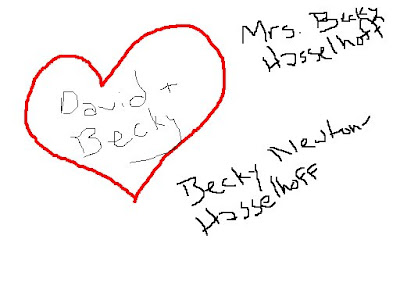 David +
Becky
Mrs. Becky
Hasselhoff
Becky Newton-
Hasselhoff